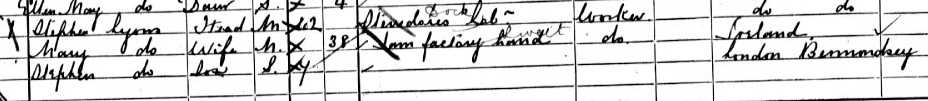 Ellen May do Daur S. 4 do do
Stephen Lyons Head M 42 Stevedores Lab Dock Worker Ireland
Mary do Wife M. X 38 Jam factory hand Sweet do. London Bermondsey
Stephen do Son S. 4